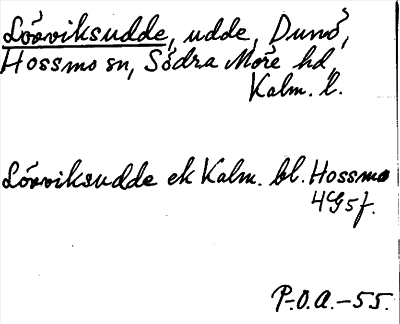 Lööviksudde, udde, Dunö,
Hossmo sn, Södra Möre hd,
Kalm. l.
Lööviksudde ek Kalm. bl. Hossmo
4G5f.
P.O.A.-55.